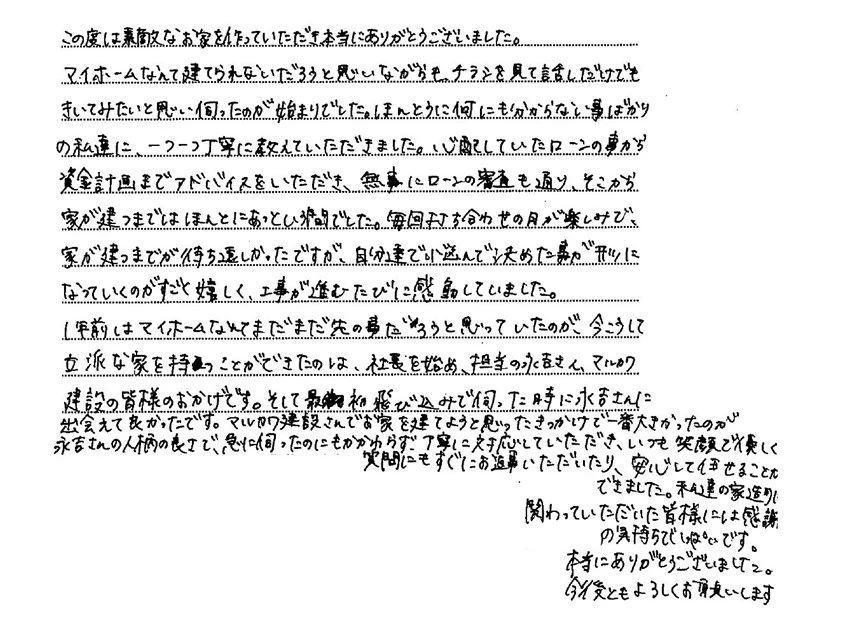 この度は素敵なお家を作っていただき本当にありがとうございました。
マイホームなんて建てられないだろうと思いながらも、チラシを見て話しだけでも
きいてみたいと思い伺ったのが始まりでした。ほんとうに何にも分からない事ばかり
の私達に、一つ一つ丁寧に教えていただきました。心配していたローンの事から
資金計画までアドバイスをいただき、無事にローンの審査も通り、そこから
家が建つまではほんとにあっという間でした。毎回打ち合わせの日が楽しみで、
家が建つまでが待ち遠しかったですが、自分達で選んで決めた事が形に
なっていくのがすごく嬉しく、工事が進むたびに感動していました。
1年前はマイホームなんてまだまだ先の事だろうと思っていたのが、今こうして
立派な家を持つことができたのは、社長を始め、担当の永吉さん、マルカワ
建設の皆様のおかげです。そして最初飛び込みで伺った時に永吉さんに
出会えて良かったです。マルカワ建設さんでお家を建てようと思ったきっかけで一番大きかったのが
永吉さんの人柄の良さで、急に伺ったのにもかかわらず丁寧に対応していただき、いつも笑顔で優しく
質問にもすぐにお返事いただいたり、安心して任せることが
できました。私達の家造りに
関わっていただいた皆様には感謝
の気持ちでいっぱいです。
本当にありがとうございました。
今後ともよろしくお願いします